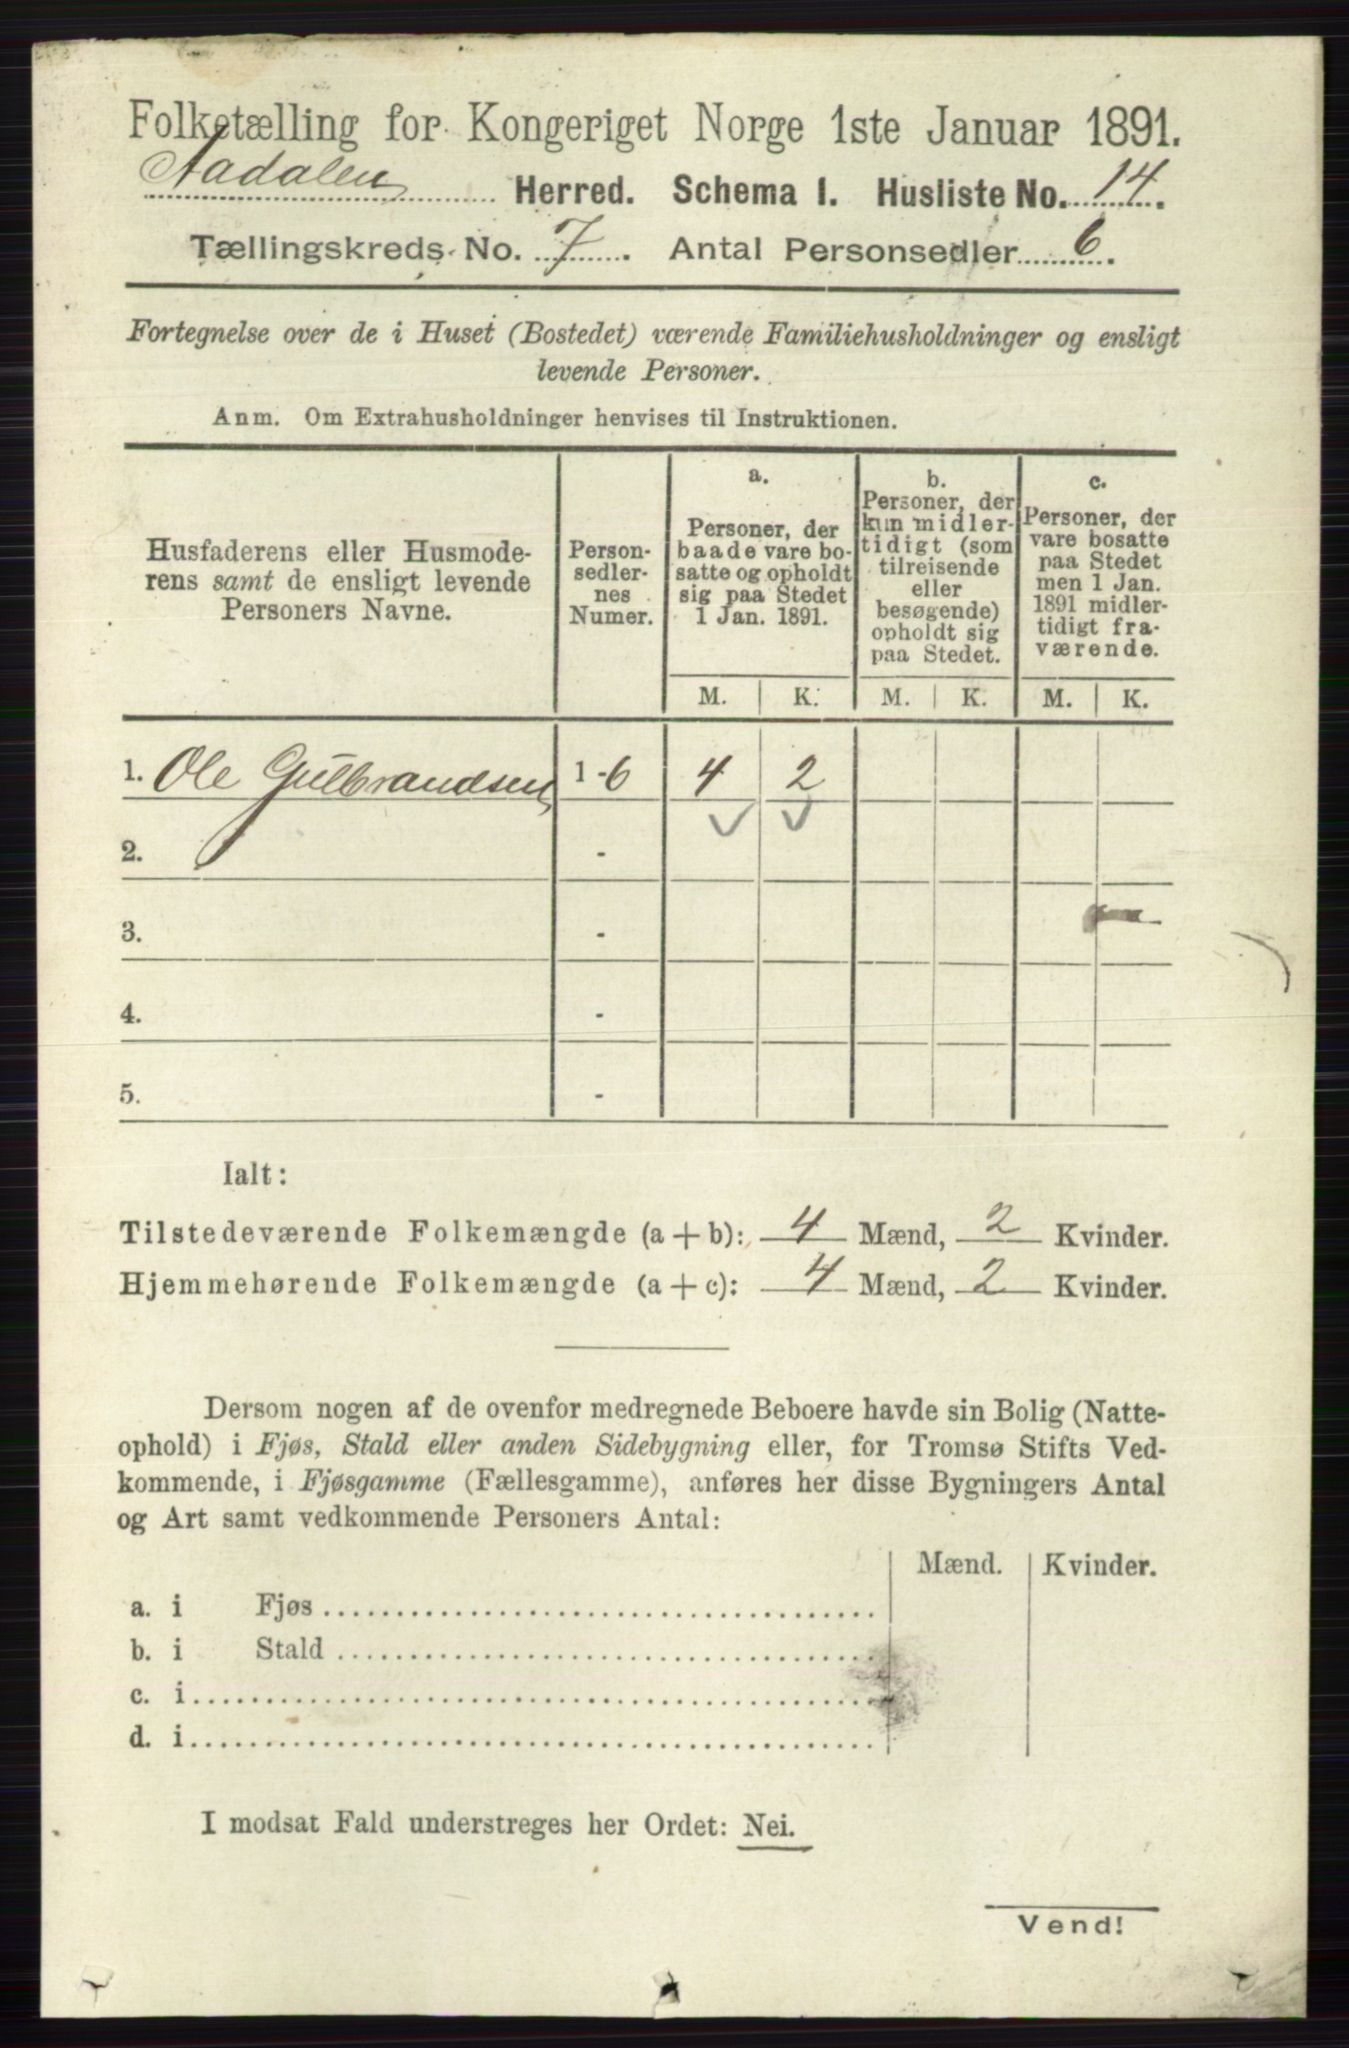 Folketælling for Kongeriget Norge 1ste Januar 1891.
Aadalen Herred. Schema 1. Husliste No. 14.
Tællingskreds No. 7. Antal Personsedler 6.
Fortegnelse over de i Huset (Bostedet) værende Familiehusholdninger og ensligt
levende Personer.
Anm. Om Extrahusholdninger henvises til Instruktionen.
Husfaderens eller Husmode-
rens samt de ensligt levende
Personers Navne.
Person-
sedler-
nes
Numer.
a.
Personer, der
baade vare bo-
satte og opholdt
sig paa Stedet
1 Jan. 1891.
b.
Personer, der
kun midler-
tidigt (som
tilreisende
eller
besøgende)
opholdt sig
paa Stedet.
c.
Personer, der
vare bosatte
paa Stedet
men 1 Jan.
1891 midler-
tidigt fra-
værende.
M. K. M. K. M. K.
1. Ole Gulbrandsen 1-6 4 2
2. -
3. -
4. -
5. -
Ialt:
Tilstedeværende Folkemængde (a + b): 4 Mænd, 2 Kvinder.
Hjemmehørende Folkemængde (a + c): 4 Mænd, 2 Kvinder.
Dersom nogen af de ovenfor medregnede Beboere havde sin Bolig (Natte-
ophold) i Fjøs, Stald eller anden Sidebygning eller, for Tromsø Stifts Ved-
kommende, i Fjøsgamme (Fællesgamme), anføres her disse Bygningers Antal
og Art samt vedkommende Personers Antal:
Mænd. Kvinder.
a. i Fjøs
b. i Stald
c. i
d. i
I modsat Fald understreges her Ordet: Nei.
Vend!